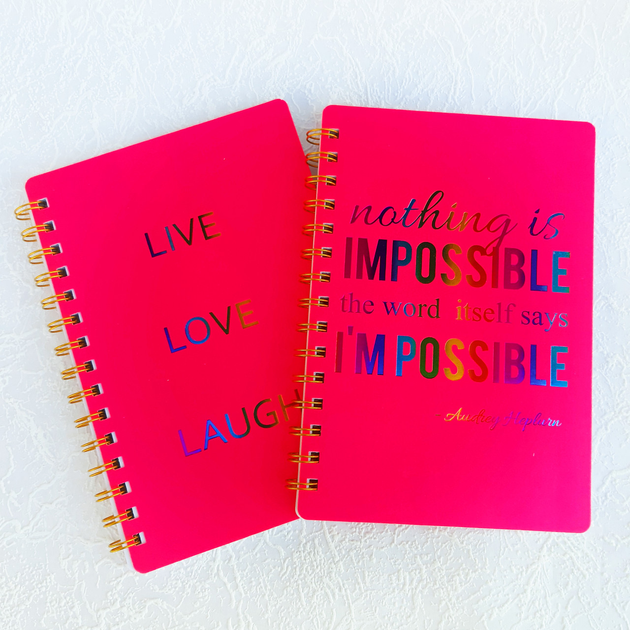 LIVE
LOVE
LAUGH
nothing is
IMPOSSIBLE
the word itself says
I'M POSSIBLE
- Audrey Hepburn